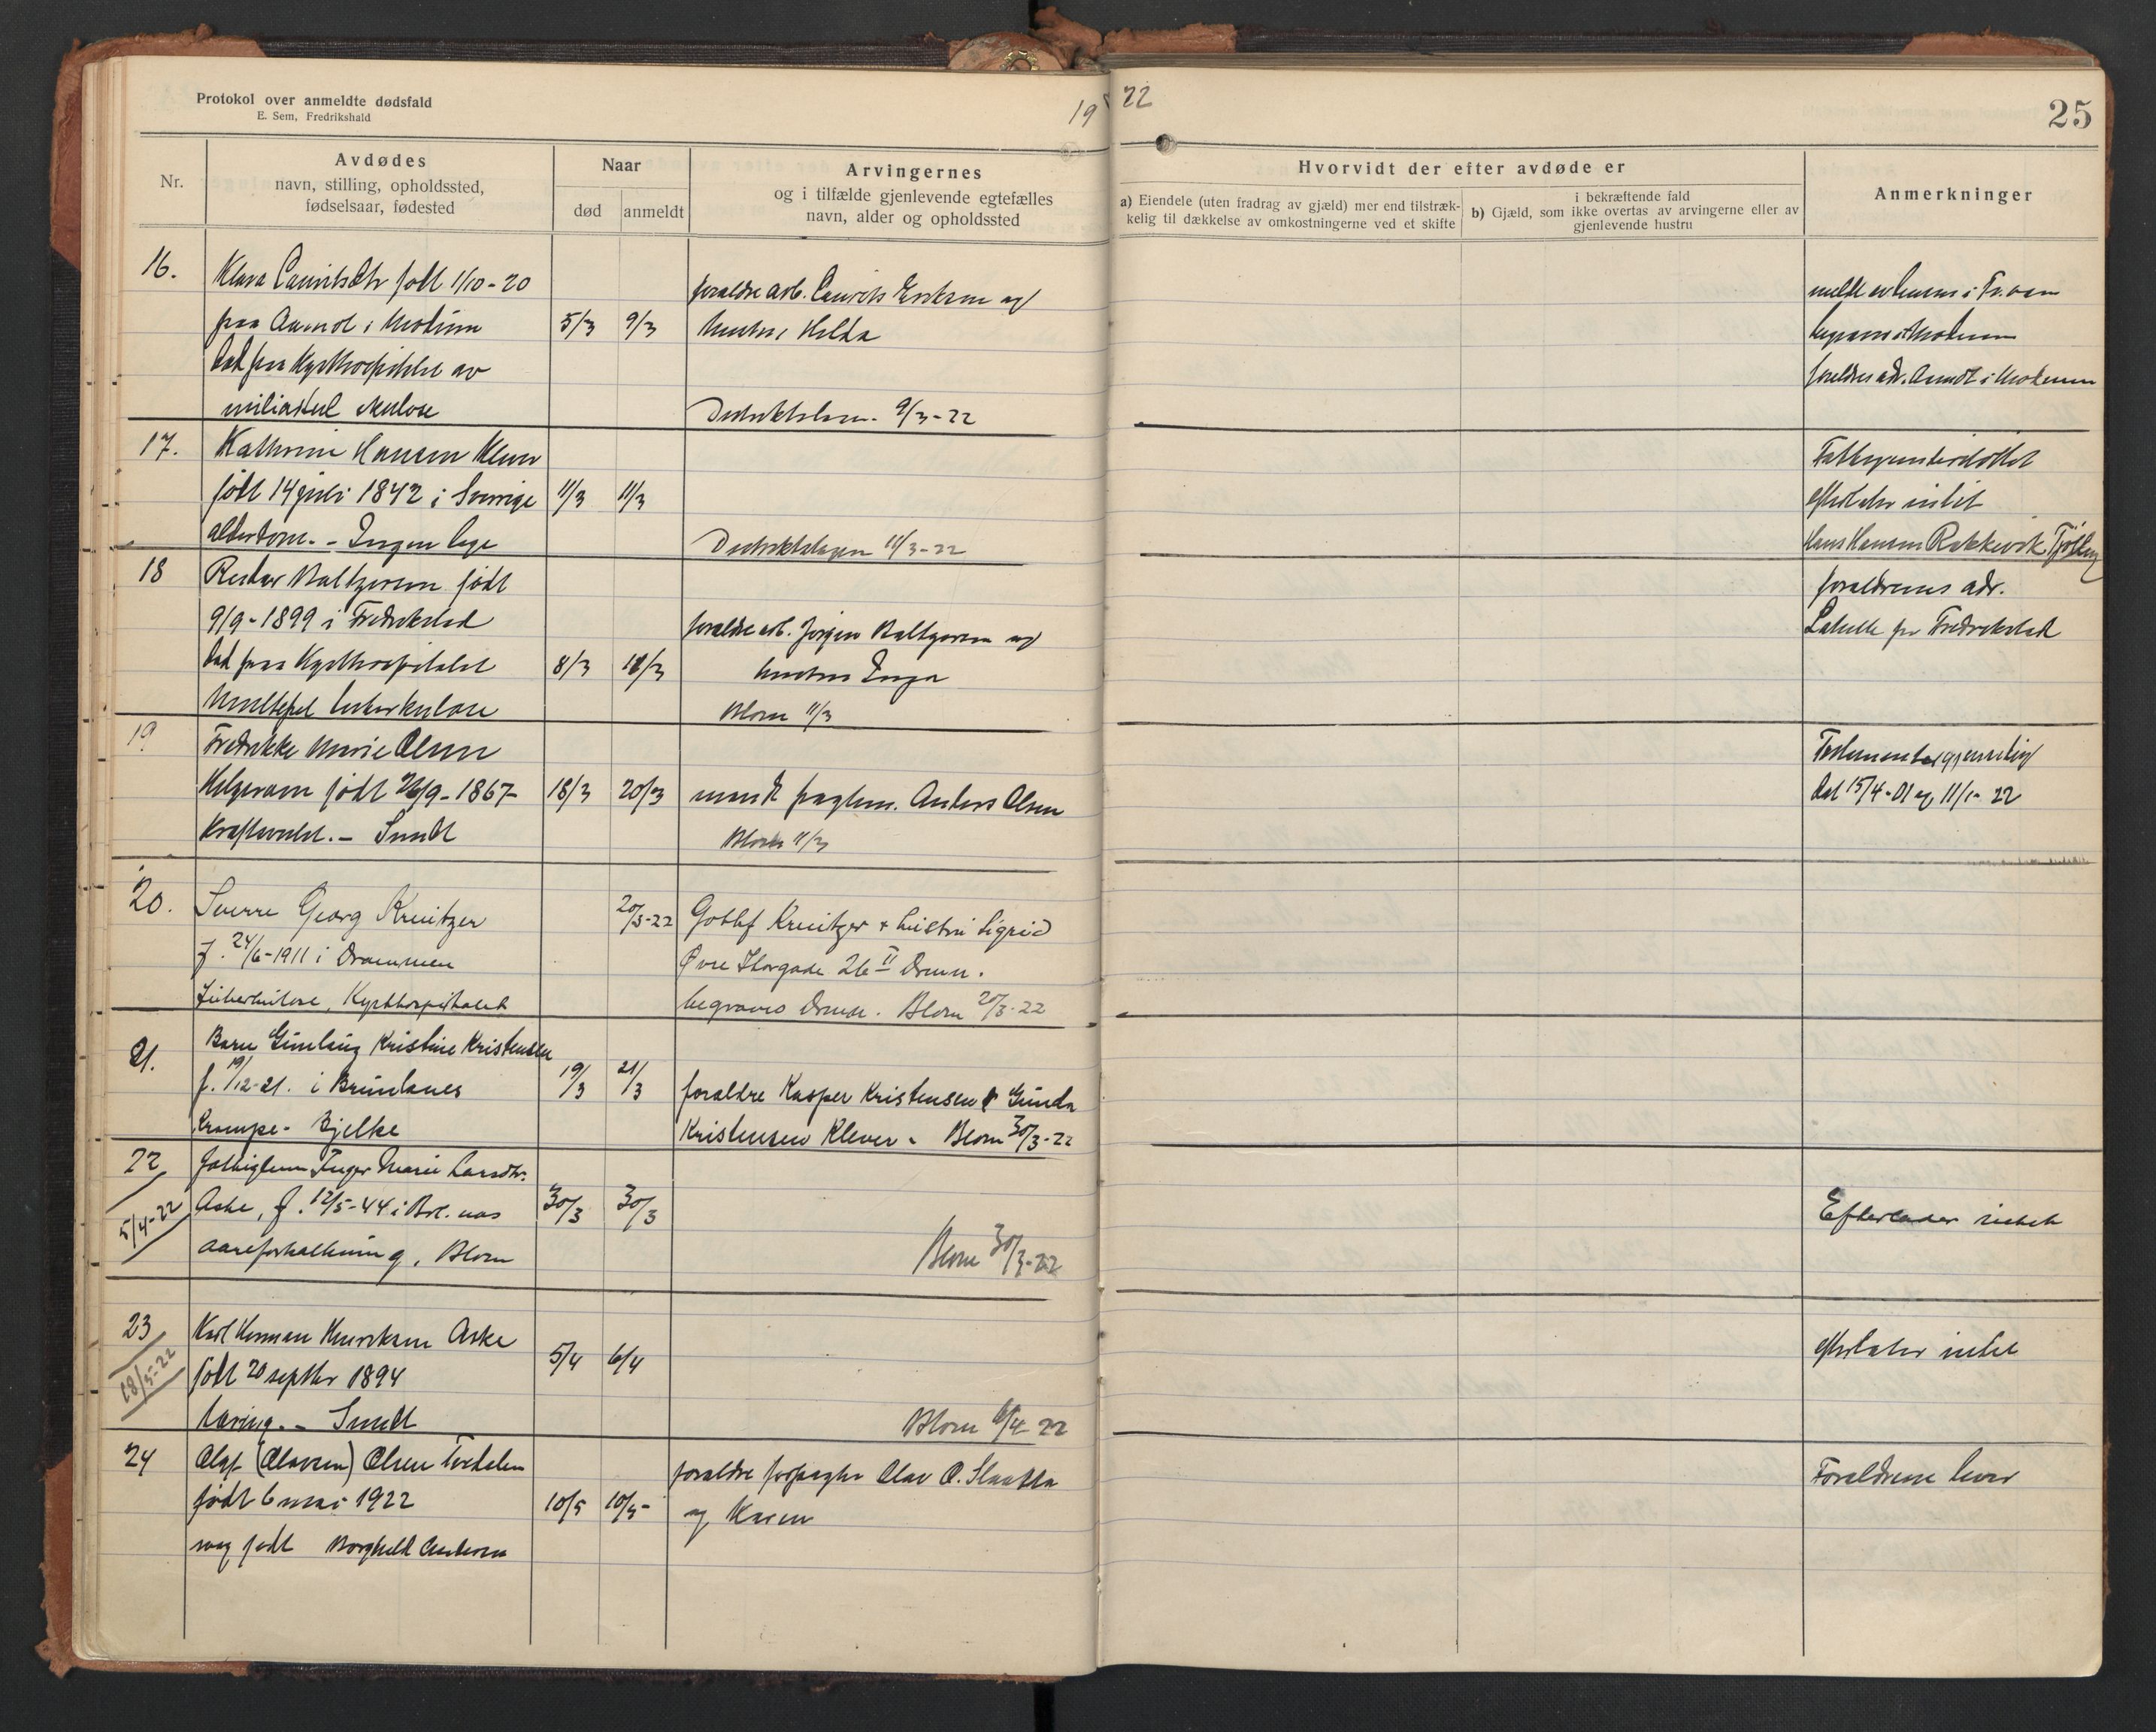 Protokol over anmeldte dødsfald
E. Sem, Fredrikshald
19
22
25
Nr.
Avdødes
navn, stilling, opholdssted,
fødselsaar, fødested
Naar
død
anmeldt
Arvingernes
og i tilfælde gjenlevende egtefælles
navn, alder og opholdssted
Hvorvidt der efter avdøde er
a) Eiendele (uten fradrag av gjæld) mer end tilstræk-
kelig til dækkelse av omkostningerne ved et skifte
i bekræftende fald
b) Gjæld, som ikke overtas av arvingerne eller av
gjenlevende hustru
Anmerkninger
16.
Klara født 1/10-20
paa i Modum
død paa Kysthospitalet av
5/3
9/3
forældre arb. Laurits og
hustru Hilda
9/3-22
i Modum
forældres adr. i Modum
17.
Kathrine Hansen
født 14 juli 1842 i Sverige
alderdom. - Ingen læge
11/3
11/3
Distriktslægen 11/3-22
efterlater intet
Hans Hansen Rakkevik Tjölling
18
født
9/9-1899 i Fredrikstad
død paa Kysthospitalet
tuberkulose
8/3
forældre arb. Jørgen og
hustru Inga
Blom 11/3
forældrenes adr.
pr Fredrikstad
19
Fredrikke Marie Olsen
Helgeroen født 26/9-1867
Kræftsvulst. -
18/3
20/3
mand Anders Olsen
Blom 11/3
dat 15/4-01 og 11/1-22
20.
Sverre Georg Kreutzer
f. 24/6-1911 i Drammen
Tuberkulose, Kysthospitalet
20/3-22
Gotlif Kreutzer + hustru Sigrid
Øvre Storgade 26 II Drmn.
begraves Drmn. Blom 20/3-22
21.
Barn Gunlaug Kristine Kristensen
f. 19/12-21. i Brunlanes
Krampe - Bjelke
19/3
21/3
forældre Kasper Kristensen & Gunda
Kristensen Klever - Blom 30/3-22
22
5/4-22
Inger Marie Larsdtr.
Aske, f. 12/5-44 i
aareforkalkning, Blom
30/3
30/3
Blom 30/3-22
Efterlader intet
23
18/5-22
Karl Herman Henriksen Aske
født 20 septbr 1894
tæring. -
5/4
6/4
Blom 6/4 22
efterlater intet
24
Olaf (Olavsen) Olsen Tvedalen
født 6 mai 1922
født Borghild
10/5
10/5
forældre Olav O.
og Karen
Forældrene lever